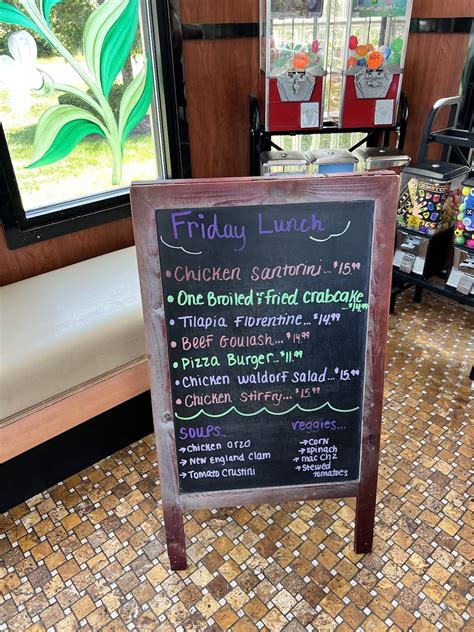 Friday Lunch
• Chicken Santorini... $15.99
• One Broiled & Fried Crabcake... $14.99
• Tilapia Florentine... $14.99
• Beef Goulash... $14.99
• Pizza Burger... $11.99
• Chicken Waldorf Salad... $15.99
• Chicken Stirfry... $15.99
Soups
→ Chicken Orzo
→ New England Clam
→ Tomato Crustini
Veggies
→ Corn
→ Spinach
→ Mac Chz
→ Stewed
tomatoes